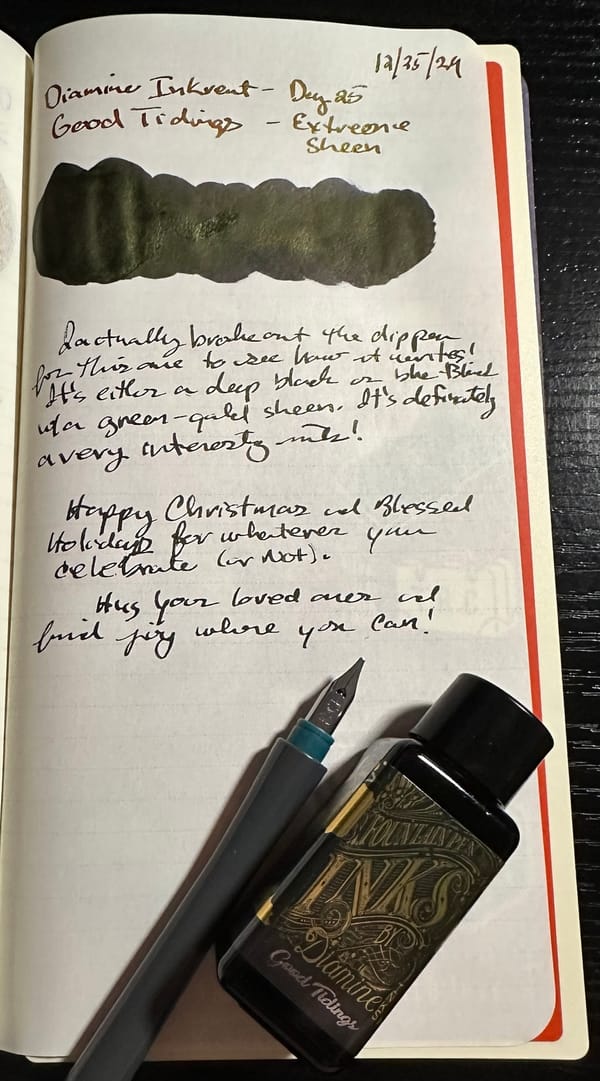 12/25/24
Diamine Inkvent - Day 25
Good Tidings - Extreme
Sheen
I actually broke out the dip pen
for this one to see how it writes!
It's either a deep black or blue-Black
w/a green-gold sheen. It's definitely
a very interesting ink!
Happy Christmas and Blessed
Holidays for whatever you
celebrate (or Not).
Hug your loved ones and
find joy where you can!
FOUNTAIN PEN
INKS
BY
Diamine
INKS
Good Tidings